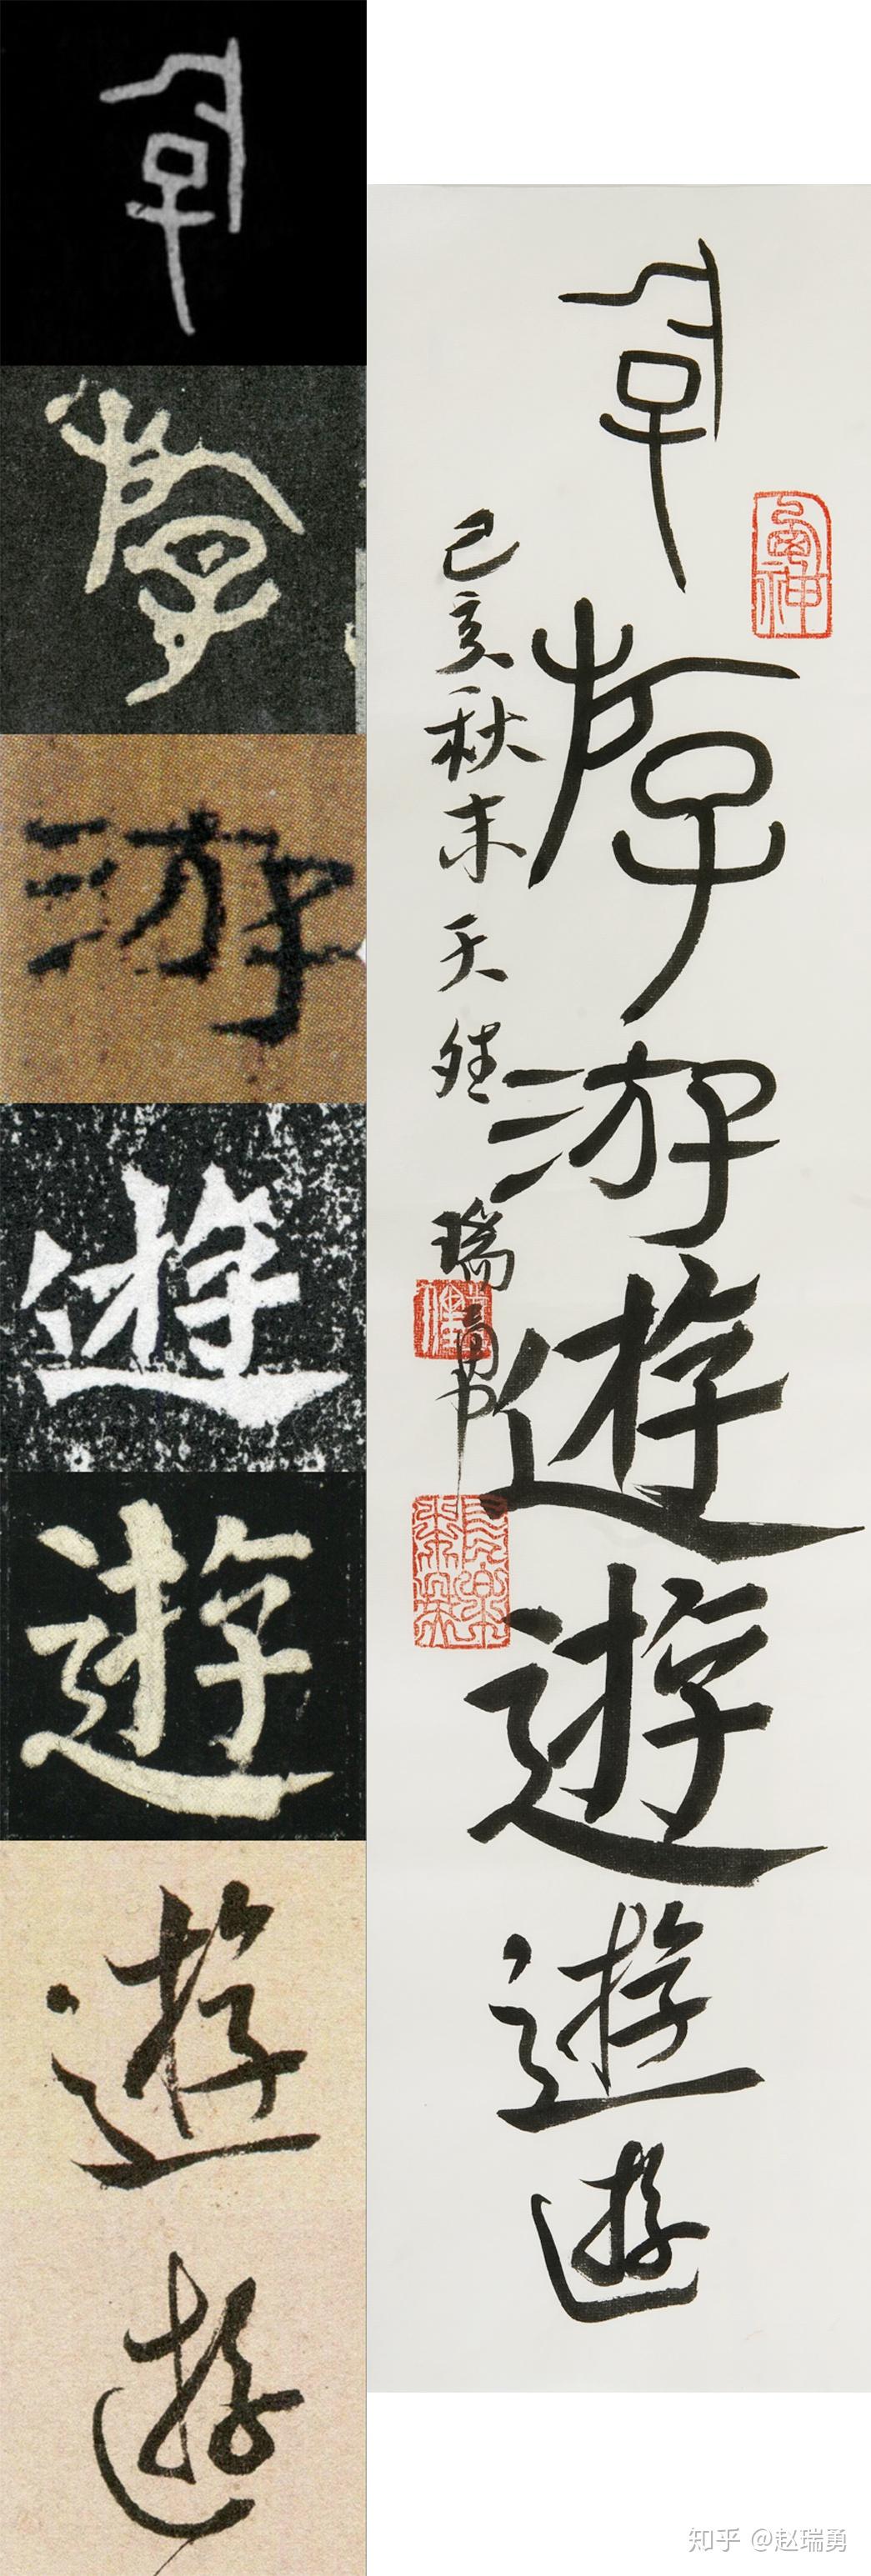 斿
斿
游
遊
遊
遊
遊
斿
斿
游
遊
遊
遊
遊
己亥秋末天
瑞勇
知乎 @赵瑞勇